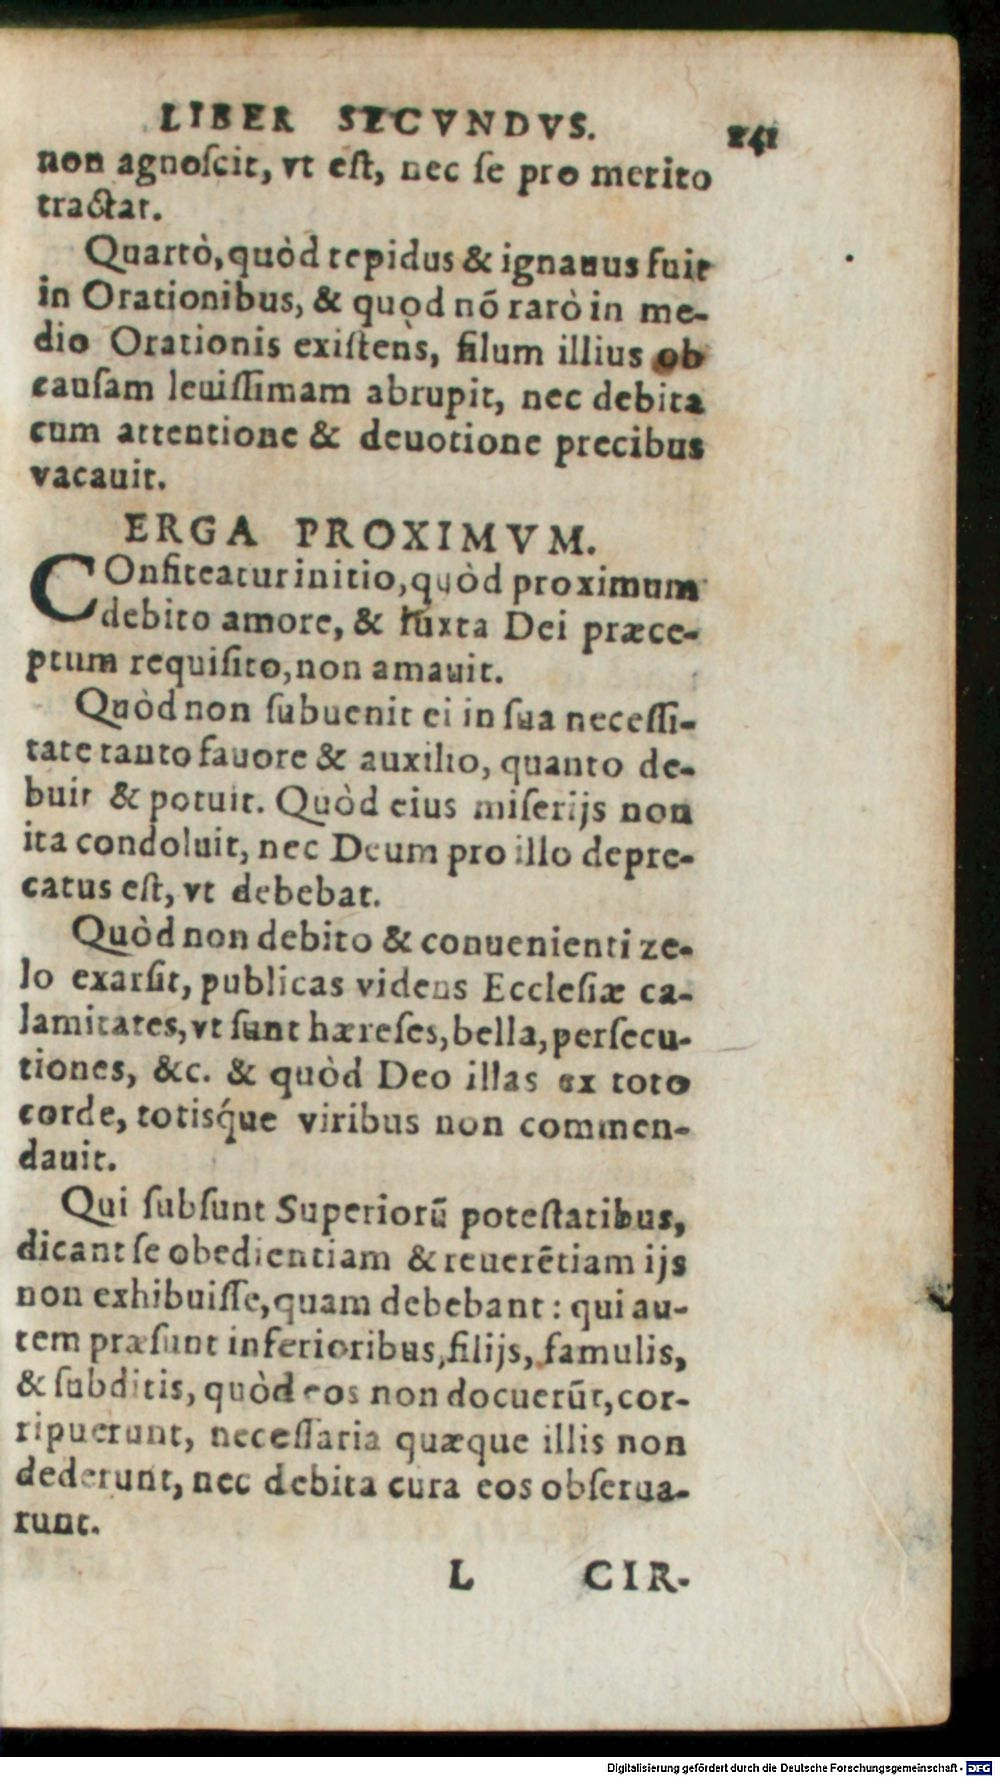 LIBER SECVNDVS. 241
non agnoſcit, vt eſt, nec ſe pro merito
tractat.
Quartò, quòd tepidus & ignauus fuit
in Orationibus, & quod nō rarò in me-
dio Orationis exiſtens, filum illius ob
cauſam leuiſſimam abrupit, nec debita
cum attentione & deuotione precibus
vacauit.
ERGA PROXIMVM.
COnfiteatur initio, quòd proximum
debito amore, & iuxta Dei præce-
ptum requiſito, non amauit.
Quòd non ſubuenit ei in ſua neceſſi-
tate tanto fauore & auxilio, quanto de-
buit & potuit. Quòd eius miſerijs non
ita condoluit, nec Deum pro illo depre-
catus eſt, vt debebat.
Quòd non debito & conuenienti ze-
lo exarſit, publicas videns Eccleſiæ ca-
lamitates, vt ſunt hæreſes, bella, perſecu-
tiones, &c. & quòd Deo illas ex toto
corde, totisq́ue viribus non commen-
dauit.
Qui ſubſunt Superiorū poteſtatibus,
dicant ſe obedientiam & reuerētiam ijs
non exhibuiſſe, quam debebant: qui au-
tem præſunt inferioribus, filijs, famulis,
& ſubditis, quòd eos non docuerūt, cor-
ripuerunt, neceſſaria quæque illis non
dederunt, nec debita cura eos obſerua-
runt.
L CIR-
Digitalisierung gefördert durch die Deutsche Forschungsgemeinschaft - DFG